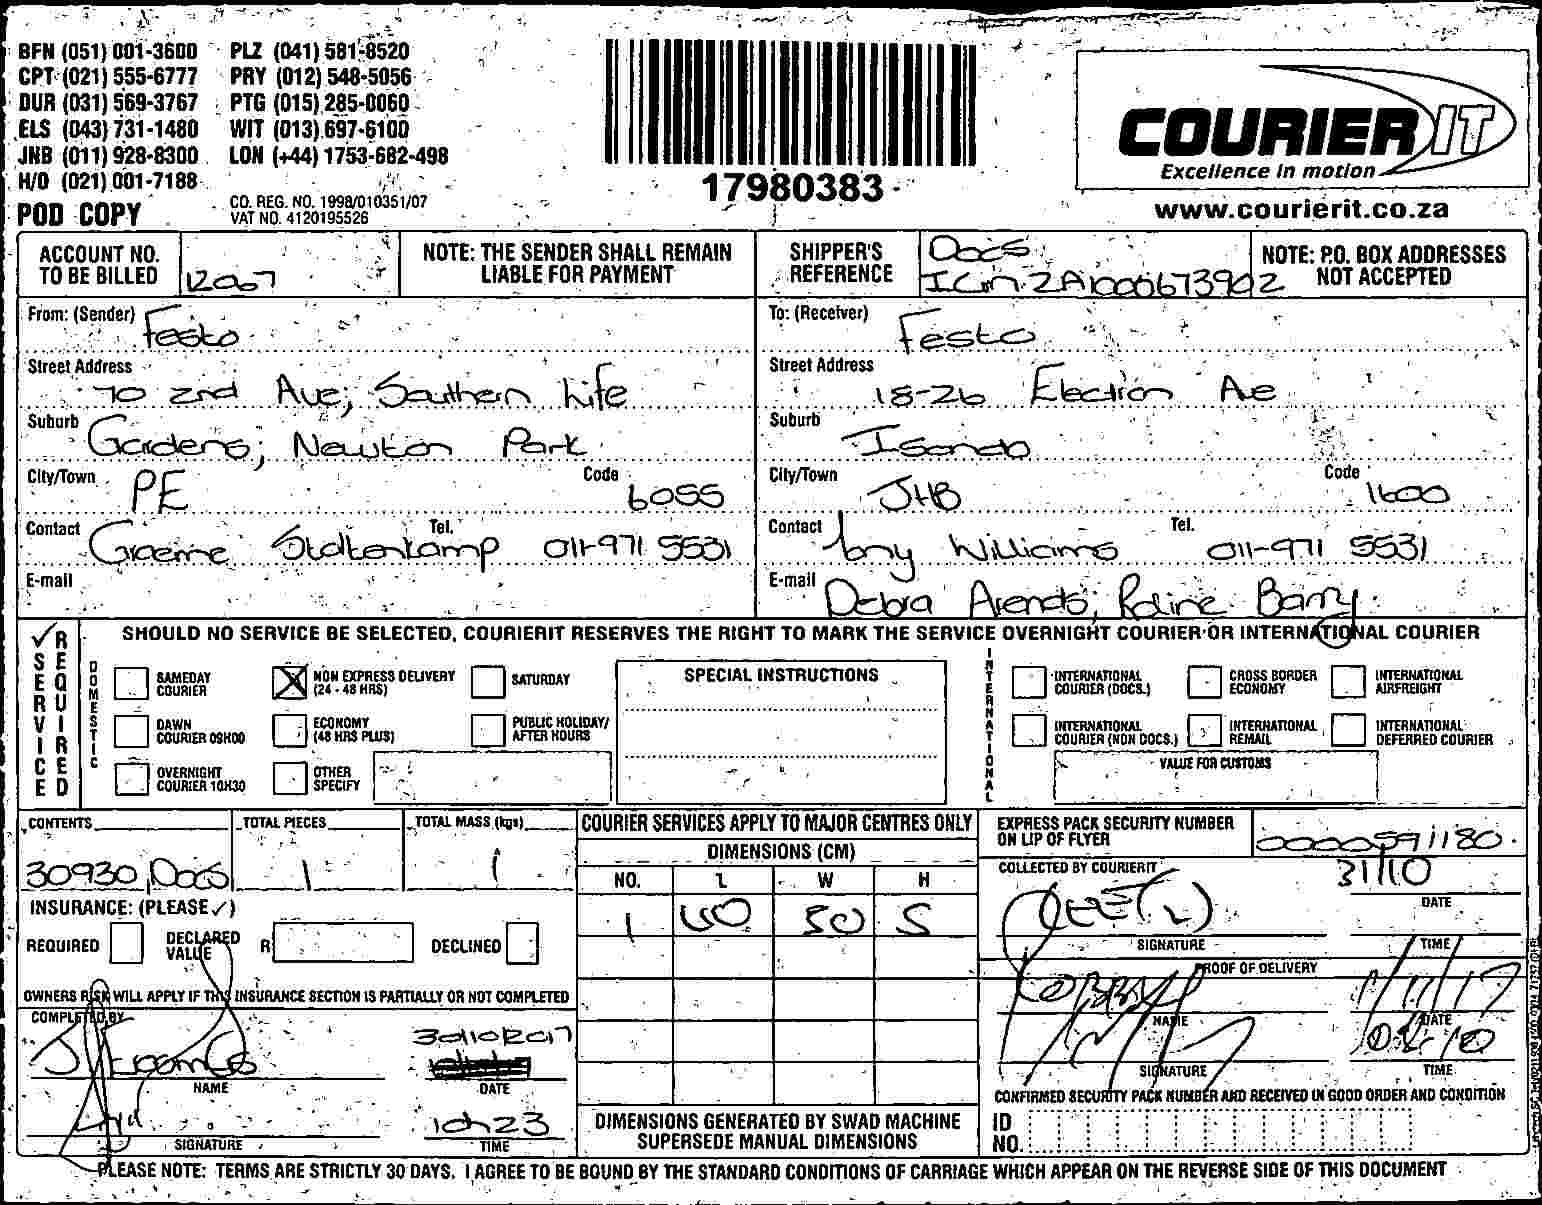 BFN (051) 001-3600 PLZ (041) 581-8520
CPT (021) 555-6777 PRY (012) 548-5056
DUR (031) 569-3767 PTG (015) 285-0060
ELS (043) 731-1480 WIT (013) 697-6100
JNB (011) 928-8300 LON (+44) 1753-682-498
H/O (021) 001-7188
CO. REG. NO. 1998/010351/07
POD COPY VAT NO. 4120195526
17980383
COURIER IT
Excellence in motion
www.courierit.co.za
ACCOUNT NO. TO BE BILLED 12007
NOTE: THE SENDER SHALL REMAIN LIABLE FOR PAYMENT
SHIPPER'S REFERENCE Docs
NOTE: P.O. BOX ADDRESSES NOT ACCEPTED
From: (Sender) Festo
Street Address 70 2nd Ave; Southern Life
Suburb Gardens; Newton Park
City/Town PE Code 6055
Contact Graeme Tel. 011-971 5531
E-mail
To: (Receiver) Festo
Street Address 18-26 Electron Ave
Suburb Isando
City/Town JHB Code 1600
Contact Tony Williams Tel. 011-971 5531
E-mail Debra Arends; Barry
SERVICE REQUIRED
SHOULD NO SERVICE BE SELECTED, COURIERIT RESERVES THE RIGHT TO MARK THE SERVICE OVERNIGHT COURIER OR INTERNATIONAL COURIER
DOMESTIC
SAMEDAY COURIER
NON EXPRESS DELIVERY (24 - 48 HRS)
SATURDAY
DAWN COURIER 09H00
ECONOMY (48 HRS PLUS)
PUBLIC HOLIDAY/ AFTER HOURS
OVERNIGHT COURIER 10H30
OTHER SPECIFY
SPECIAL INSTRUCTIONS
INTERNATIONAL
INTERNATIONAL COURIER (DOCS.)
CROSS BORDER ECONOMY
INTERNATIONAL AIRFREIGHT
INTERNATIONAL COURIER (NON DOCS.)
INTERNATIONAL REMAIL
INTERNATIONAL DEFERRED COURIER
VALUE FOR CUSTOMS
CONTENTS 30930, Docs
TOTAL PIECES 1
TOTAL MASS (kgs) 1
COURIER SERVICES APPLY TO MAJOR CENTRES ONLY
DIMENSIONS (CM)
NO. L W H
1 50 5
EXPRESS PACK SECURITY NUMBER ON LIP OF FLYER 0000591180
COLLECTED BY COURIERIT 31/10
SIGNATURE DATE
TIME
INSURANCE: (PLEASE ✓)
REQUIRED DECLARED VALUE R DECLINED
OWNERS RISK WILL APPLY IF THIS INSURANCE SECTION IS PARTIALLY OR NOT COMPLETED
COMPLETED BY
30/10/2017
NAME DATE
10h23
SIGNATURE TIME
PROOF OF DELIVERY
1/11/17
NAME DATE
SIGNATURE TIME
CONFIRMED SECURITY PACK NUMBER AND RECEIVED IN GOOD ORDER AND CONDITION
ID NO.
DIMENSIONS GENERATED BY SWAD MACHINE SUPERSEDE MANUAL DIMENSIONS
PLEASE NOTE: TERMS ARE STRICTLY 30 DAYS. I AGREE TO BE BOUND BY THE STANDARD CONDITIONS OF CARRIAGE WHICH APPEAR ON THE REVERSE SIDE OF THIS DOCUMENT